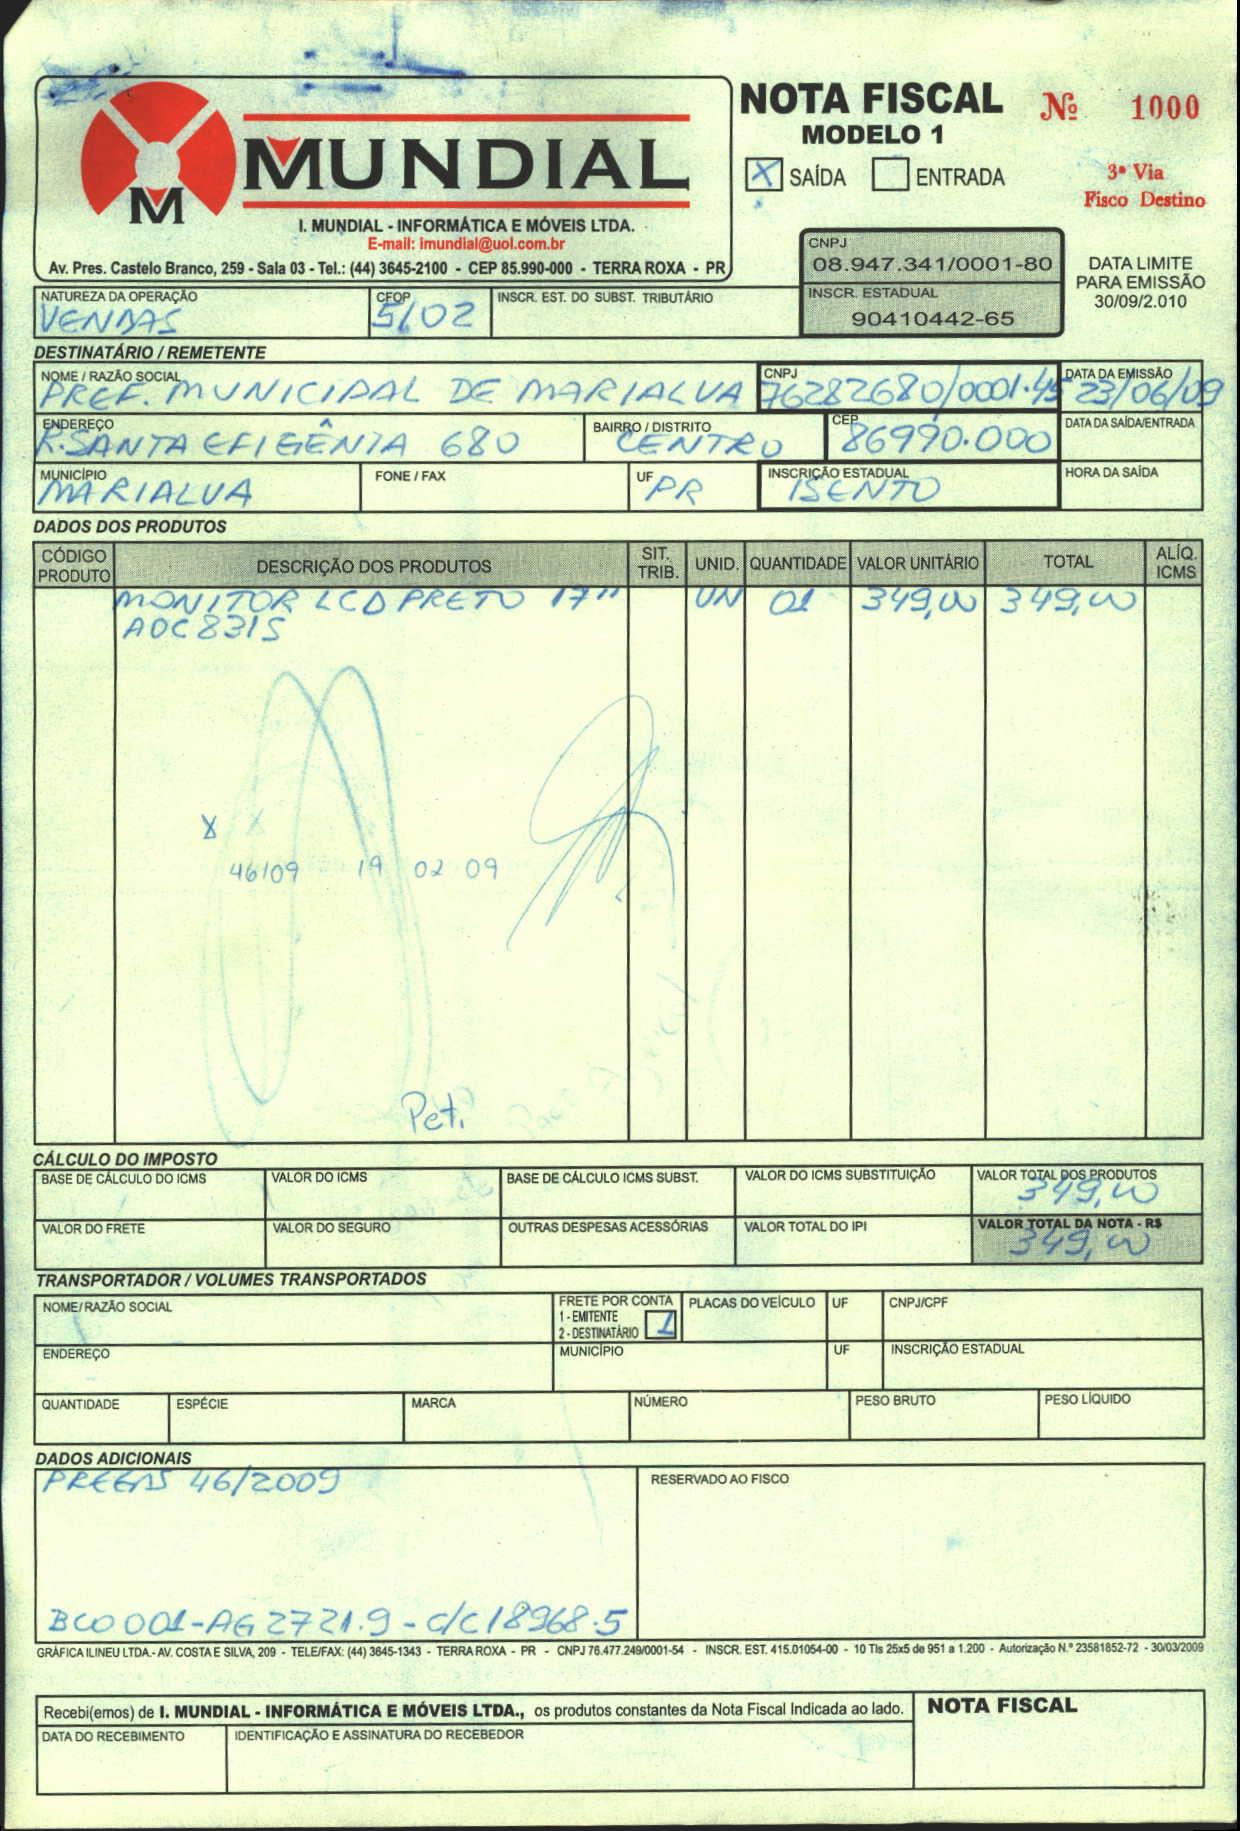 NOTA FISCAL
MODELO 1
Nº 1000
X SAÍDA ENTRADA
3ª Via
Fisco Destino
M
MUNDIAL
I. MUNDIAL - INFORMÁTICA E MÓVEIS LTDA.
E-mail: imundial@uol.com.br
Av. Pres. Castelo Branco, 259 - Sala 03 - Tel.: (44) 3645-2100 - CEP 85.990-000 - TERRA ROXA - PR
CNPJ
08.947.341/0001-80
INSCR. ESTADUAL
90410442-65
DATA LIMITE
PARA EMISSÃO
30/09/2.010
NATUREZA DA OPERAÇÃO CFOP INSCR. EST. DO SUBST. TRIBUTÁRIO
VENDAS 5102
DESTINATÁRIO / REMETENTE
NOME / RAZÃO SOCIAL CNPJ DATA DA EMISSÃO
PREF. MUNICIPAL DE MARIALVA 76282680/0001-45 23/06/09
ENDEREÇO BAIRRO / DISTRITO CEP DATA DA SAÍDA/ENTRADA
R. SANTA EFIGÊNIA 680 CENTRO 86990.000
MUNICÍPIO FONE / FAX UF INSCRIÇÃO ESTADUAL HORA DA SAÍDA
MARIALVA PR ISENTO
DADOS DOS PRODUTOS
CÓDIGO PRODUTO DESCRIÇÃO DOS PRODUTOS SIT. TRIB. UNID. QUANTIDADE VALOR UNITÁRIO TOTAL ALÍQ. ICMS
MONITOR LCD PRETO 17" UN 01 349,00 349,00
AOC 831S
X X
46109 19 02 09
Peti
CÁLCULO DO IMPOSTO
BASE DE CÁLCULO DO ICMS VALOR DO ICMS BASE DE CÁLCULO ICMS SUBST. VALOR DO ICMS SUBSTITUIÇÃO VALOR TOTAL DOS PRODUTOS
349,00
VALOR DO FRETE VALOR DO SEGURO OUTRAS DESPESAS ACESSÓRIAS VALOR TOTAL DO IPI VALOR TOTAL DA NOTA - R$
349,00
TRANSPORTADOR / VOLUMES TRANSPORTADOS
NOME/ RAZÃO SOCIAL FRETE POR CONTA 1 - EMITENTE 2 - DESTINATÁRIO 1 PLACAS DO VEÍCULO UF CNPJ/CPF
ENDEREÇO MUNICÍPIO UF INSCRIÇÃO ESTADUAL
QUANTIDADE ESPÉCIE MARCA NÚMERO PESO BRUTO PESO LÍQUIDO
DADOS ADICIONAIS
46/2009
RESERVADO AO FISCO
BCO 001-AG 2721.9 - C/C 18968.5
GRÁFICA ILINEU LTDA.- AV. COSTA E SILVA, 209 - TELE/FAX: (44) 3645-1343 - TERRA ROXA - PR - CNPJ 76.477.249/0001-54 - INSCR. EST. 415.01054-00 - 10 Tls 25x5 de 951 a 1.200 - Autorização N.º 23581852-72 - 30/03/2009
Recebi(emos) de I. MUNDIAL - INFORMÁTICA E MÓVEIS LTDA., os produtos constantes da Nota Fiscal Indicada ao lado.
NOTA FISCAL
DATA DO RECEBIMENTO IDENTIFICAÇÃO E ASSINATURA DO RECEBEDOR